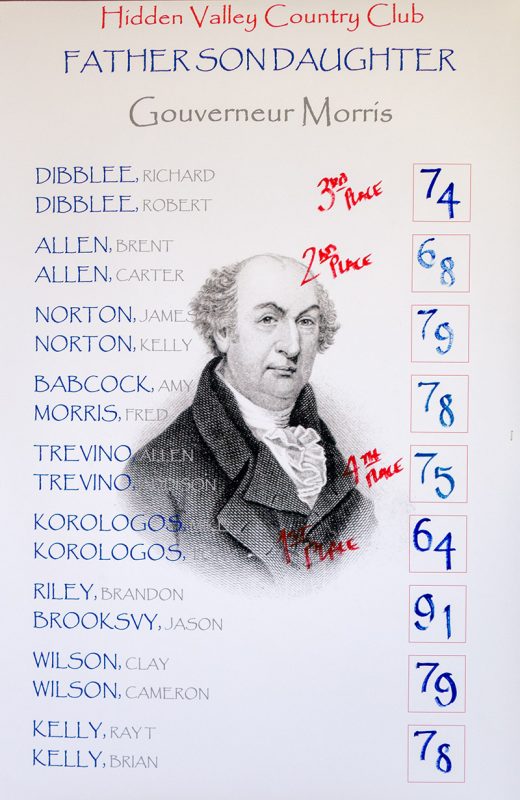 Hidden Valley Country Club
FATHER SON DAUGHTER
Gouverneur Morris
DIBBLEE, RICHARD
DIBBLEE, ROBERT
3RD PLACE
74
ALLEN, BRENT
ALLEN, CARTER
2ND PLACE
68
NORTON, JAMES
NORTON, KELLY
79
BABCOCK, AMY
MORRIS, FRED
78
TREVINO, ALLEN
TREVINO,
4TH PLACE
75
KOROLOGOS,
KOROLOGOS,
1ST PLACE
64
RILEY, BRANDON
BROOKSVY, JASON
91
WILSON, CLAY
WILSON, CAMERON
79
KELLY, RAY T
KELLY, BRIAN
78